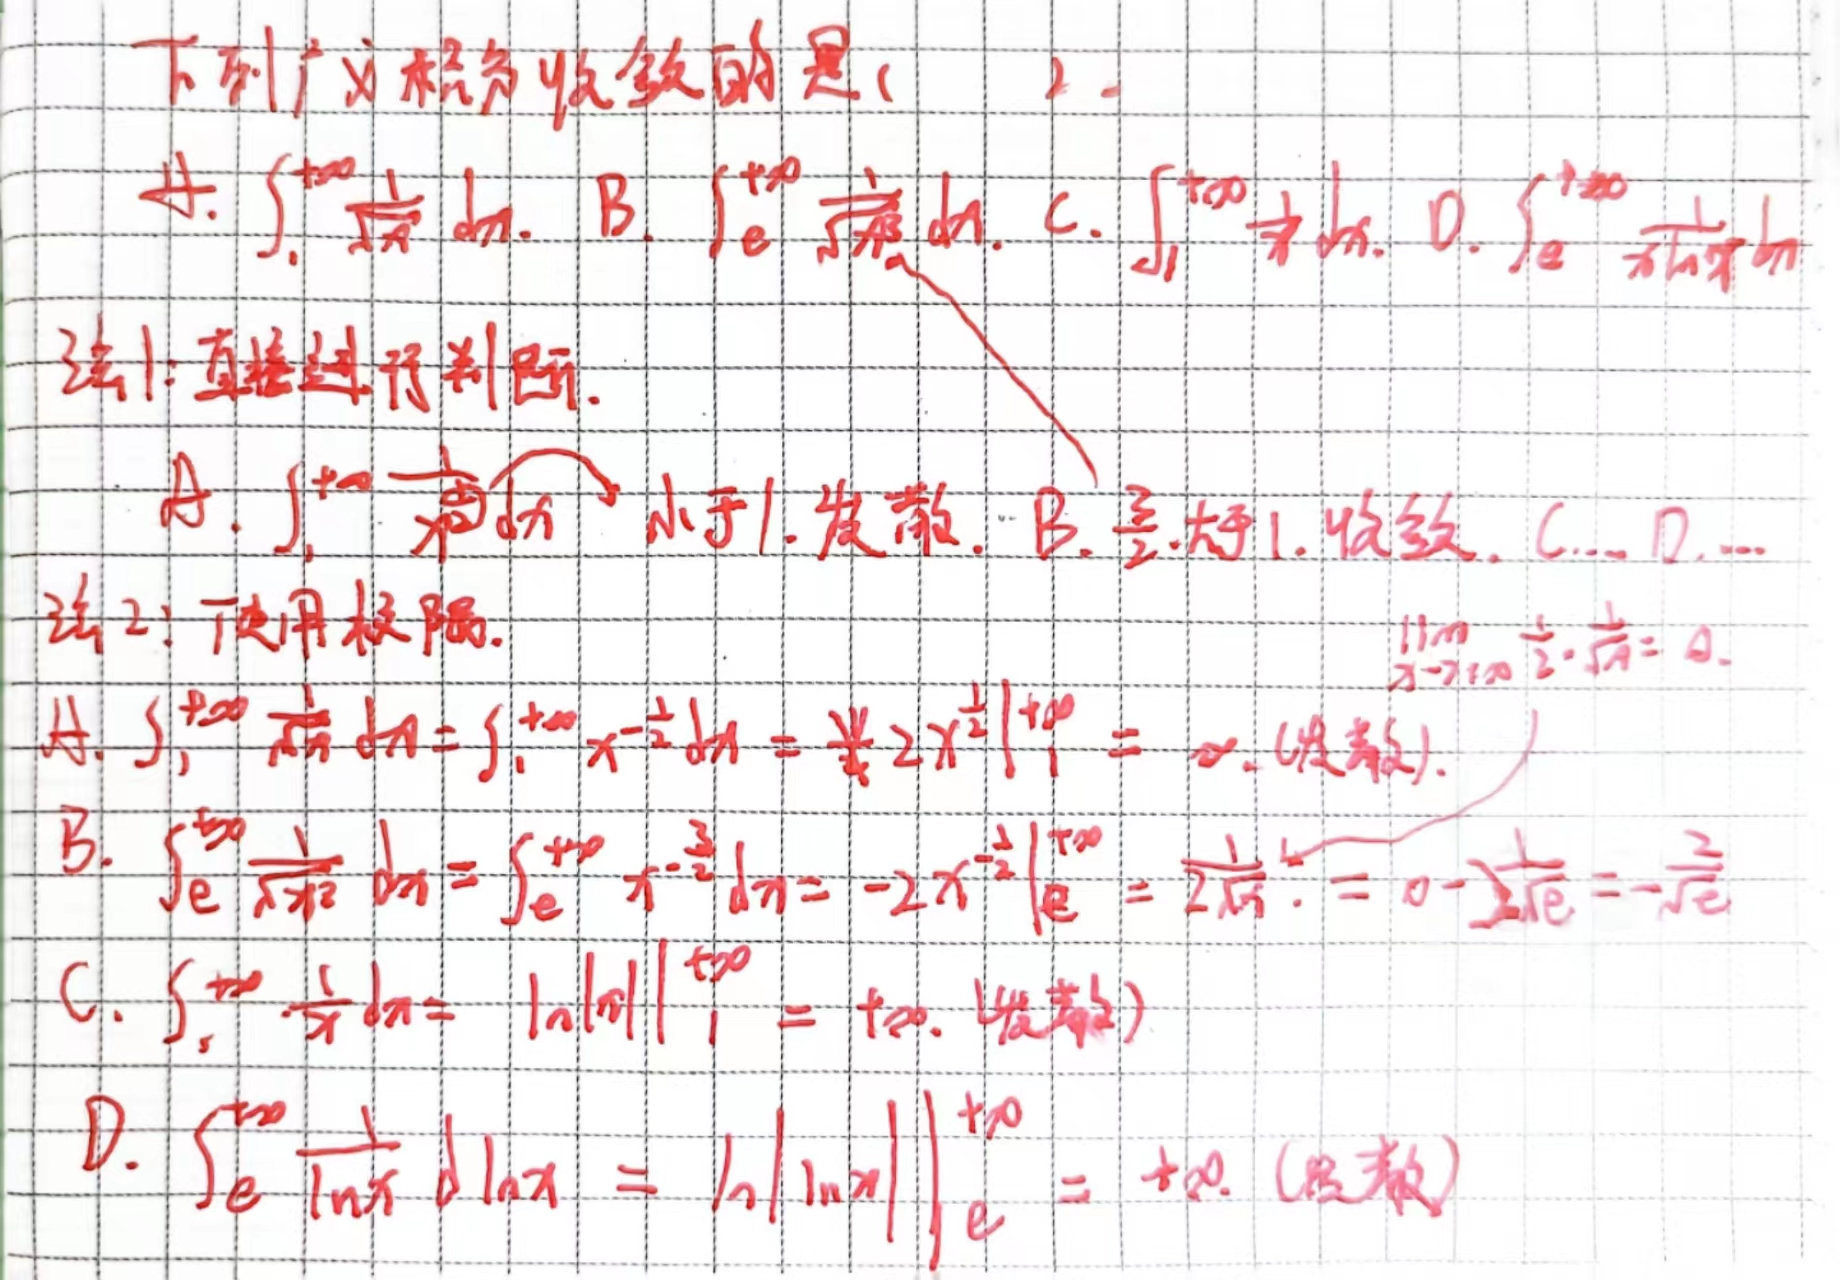 下列广义积分收敛的是( ).
A. ∫₁^{+∞} 1/√x dx. B. ∫_e^{+∞} 1/√x³ dx. C. ∫₁^{+∞} 1/x dx. D. ∫_e^{+∞} 1/(x ln x) dx
法1:直接进行判断.
A. ∫₁^{+∞} 1/x^{1/2} dx 小于1.发散. B. 3/2.大于1.收敛. C.... D....
法2:使用极限.
lim_{x→+∞} 1/2 · 1/√x = 0.
A. ∫₁^{+∞} 1/√x dx = ∫₁^{+∞} x^{-1/2} dx = 2x^{1/2} |₁^{+∞} = ∞. (发散).
B. ∫_e^{+∞} 1/√x³ dx = ∫_e^{+∞} x^{-3/2} dx = -2x^{-1/2} |_e^{+∞} = 1/(2√x) . = 0 - 1/√e = -2/√e
C. ∫₁^{+∞} 1/x dx = ln|x| |₁^{+∞} = +∞. (发散)
D. ∫_e^{+∞} 1/ln x d ln x = ln|ln x| |_e^{+∞} = +∞. (发散)